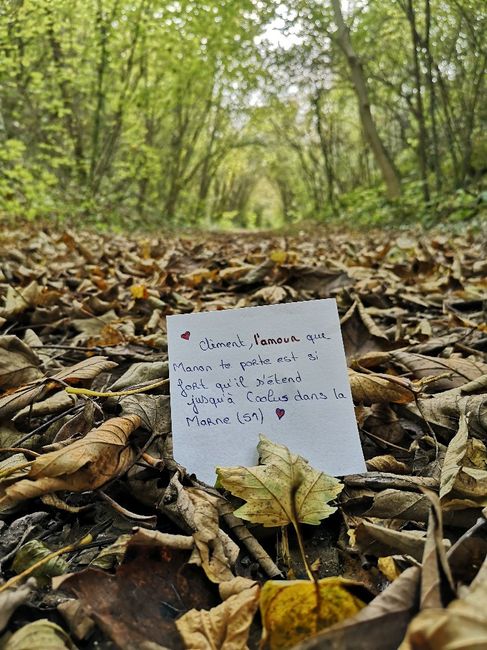 Clément, l'amour que
Manon te porte est si
fort qu'il s'étend
jusqu'à Coolus dans la
Marne (51)